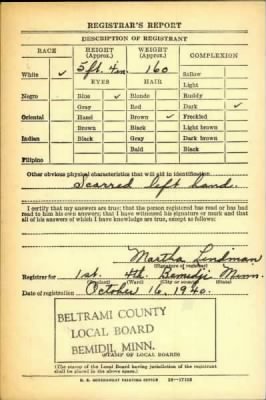 REGISTRAR'S REPORT
DESCRIPTION OF REGISTRANT
RACE HEIGHT (Approx.) WEIGHT (Approx.) COMPLEXION
5 ft. 4 in. 160
White ✓ EYES HAIR Sallow
Light
Negro Blue ✓ Blonde Ruddy
Gray Red Dark ✓
Oriental Hazel Brown ✓ Freckled
Brown Black Light brown
Indian Black Gray Dark brown
Bald Black
Filipino
Other obvious physical characteristics that will aid in identification
Scarred left hand.
I certify that my answers are true; that the person registered has read or has had
read to him his own answers; that I have witnessed his signature or mark and that
all of his answers of which I have knowledge are true, except as follows:
Martha Lindman
(Signature of registrar)
Registrar for 1st. 4th. Bemidji Minn.
(Precinct) (Ward) (City or county) (State)
Date of registration October 16, 1940.
BELTRAMI COUNTY
LOCAL BOARD
BEMIDJI, MINN.
(STAMP OF LOCAL BOARD)
(The stamp of the Local Board having jurisdiction of the registrant
shall be placed in the above space.)
U. S. GOVERNMENT PRINTING OFFICE 16—17105